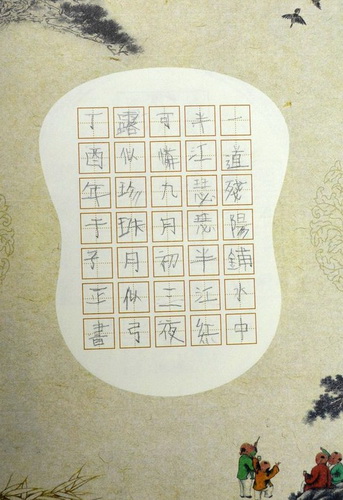 一道殘陽鋪水中
半江瑟瑟半江紅
可憐九月初三夜
露似珍珠月似弓
丁酉年于子正書